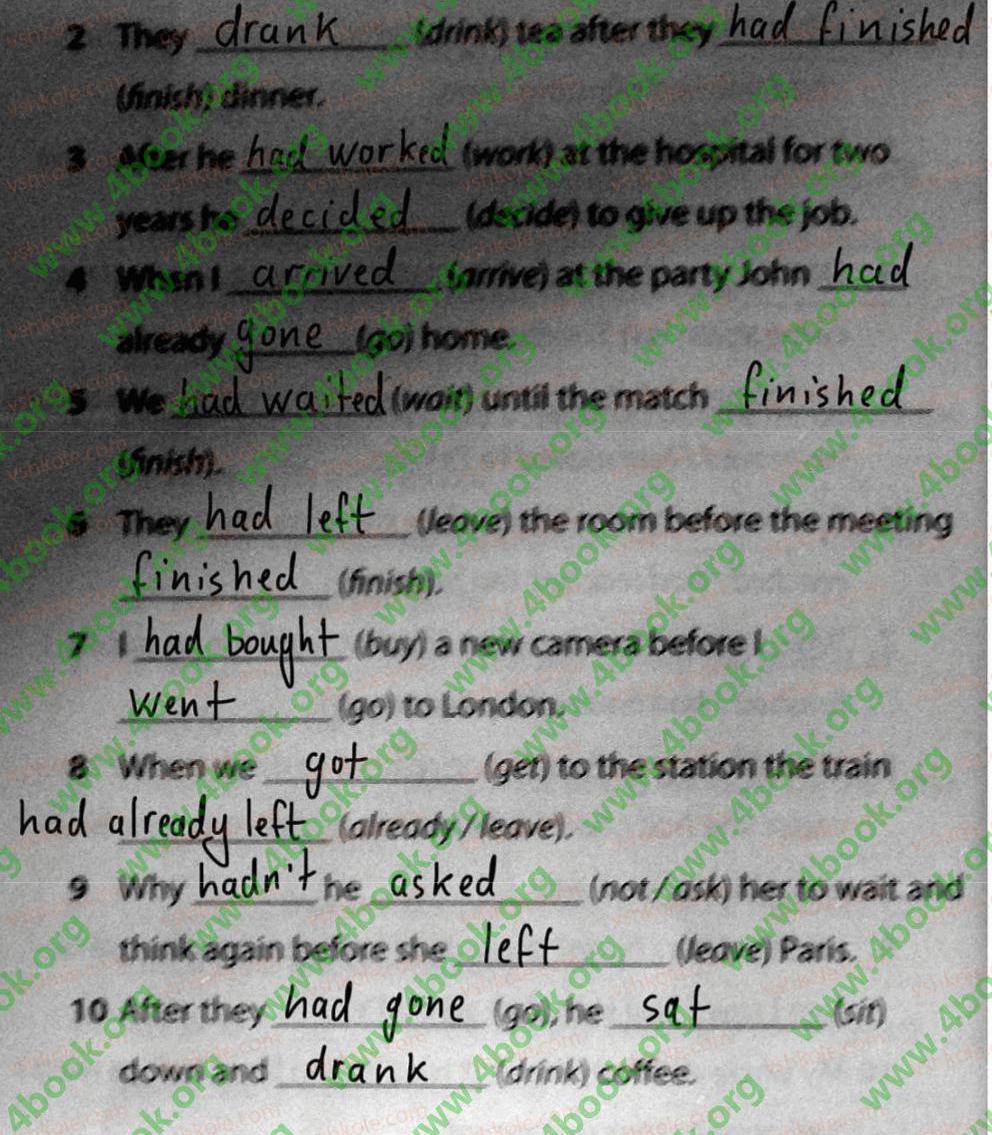 2 They drank (drink) tea after they had finished
(finish) dinner.
3 After he had worked (work) at the hospital for two
years he decided (decide) to give up the job.
4 When I arrived (arrive) at the party John had
already gone (go) home.
5 We had waited (wait) until the match finished
(finish).
6 They had left (leave) the room before the meeting
finished (finish).
7 I had bought (buy) a new camera before I
went (go) to London.
8 When we got (get) to the station the train
had already left (already / leave).
9 Why hadn't he asked (not / ask) her to wait and
think again before she left (leave) Paris.
10 After they had gone (go), he sat (sit)
down and drank (drink) coffee.